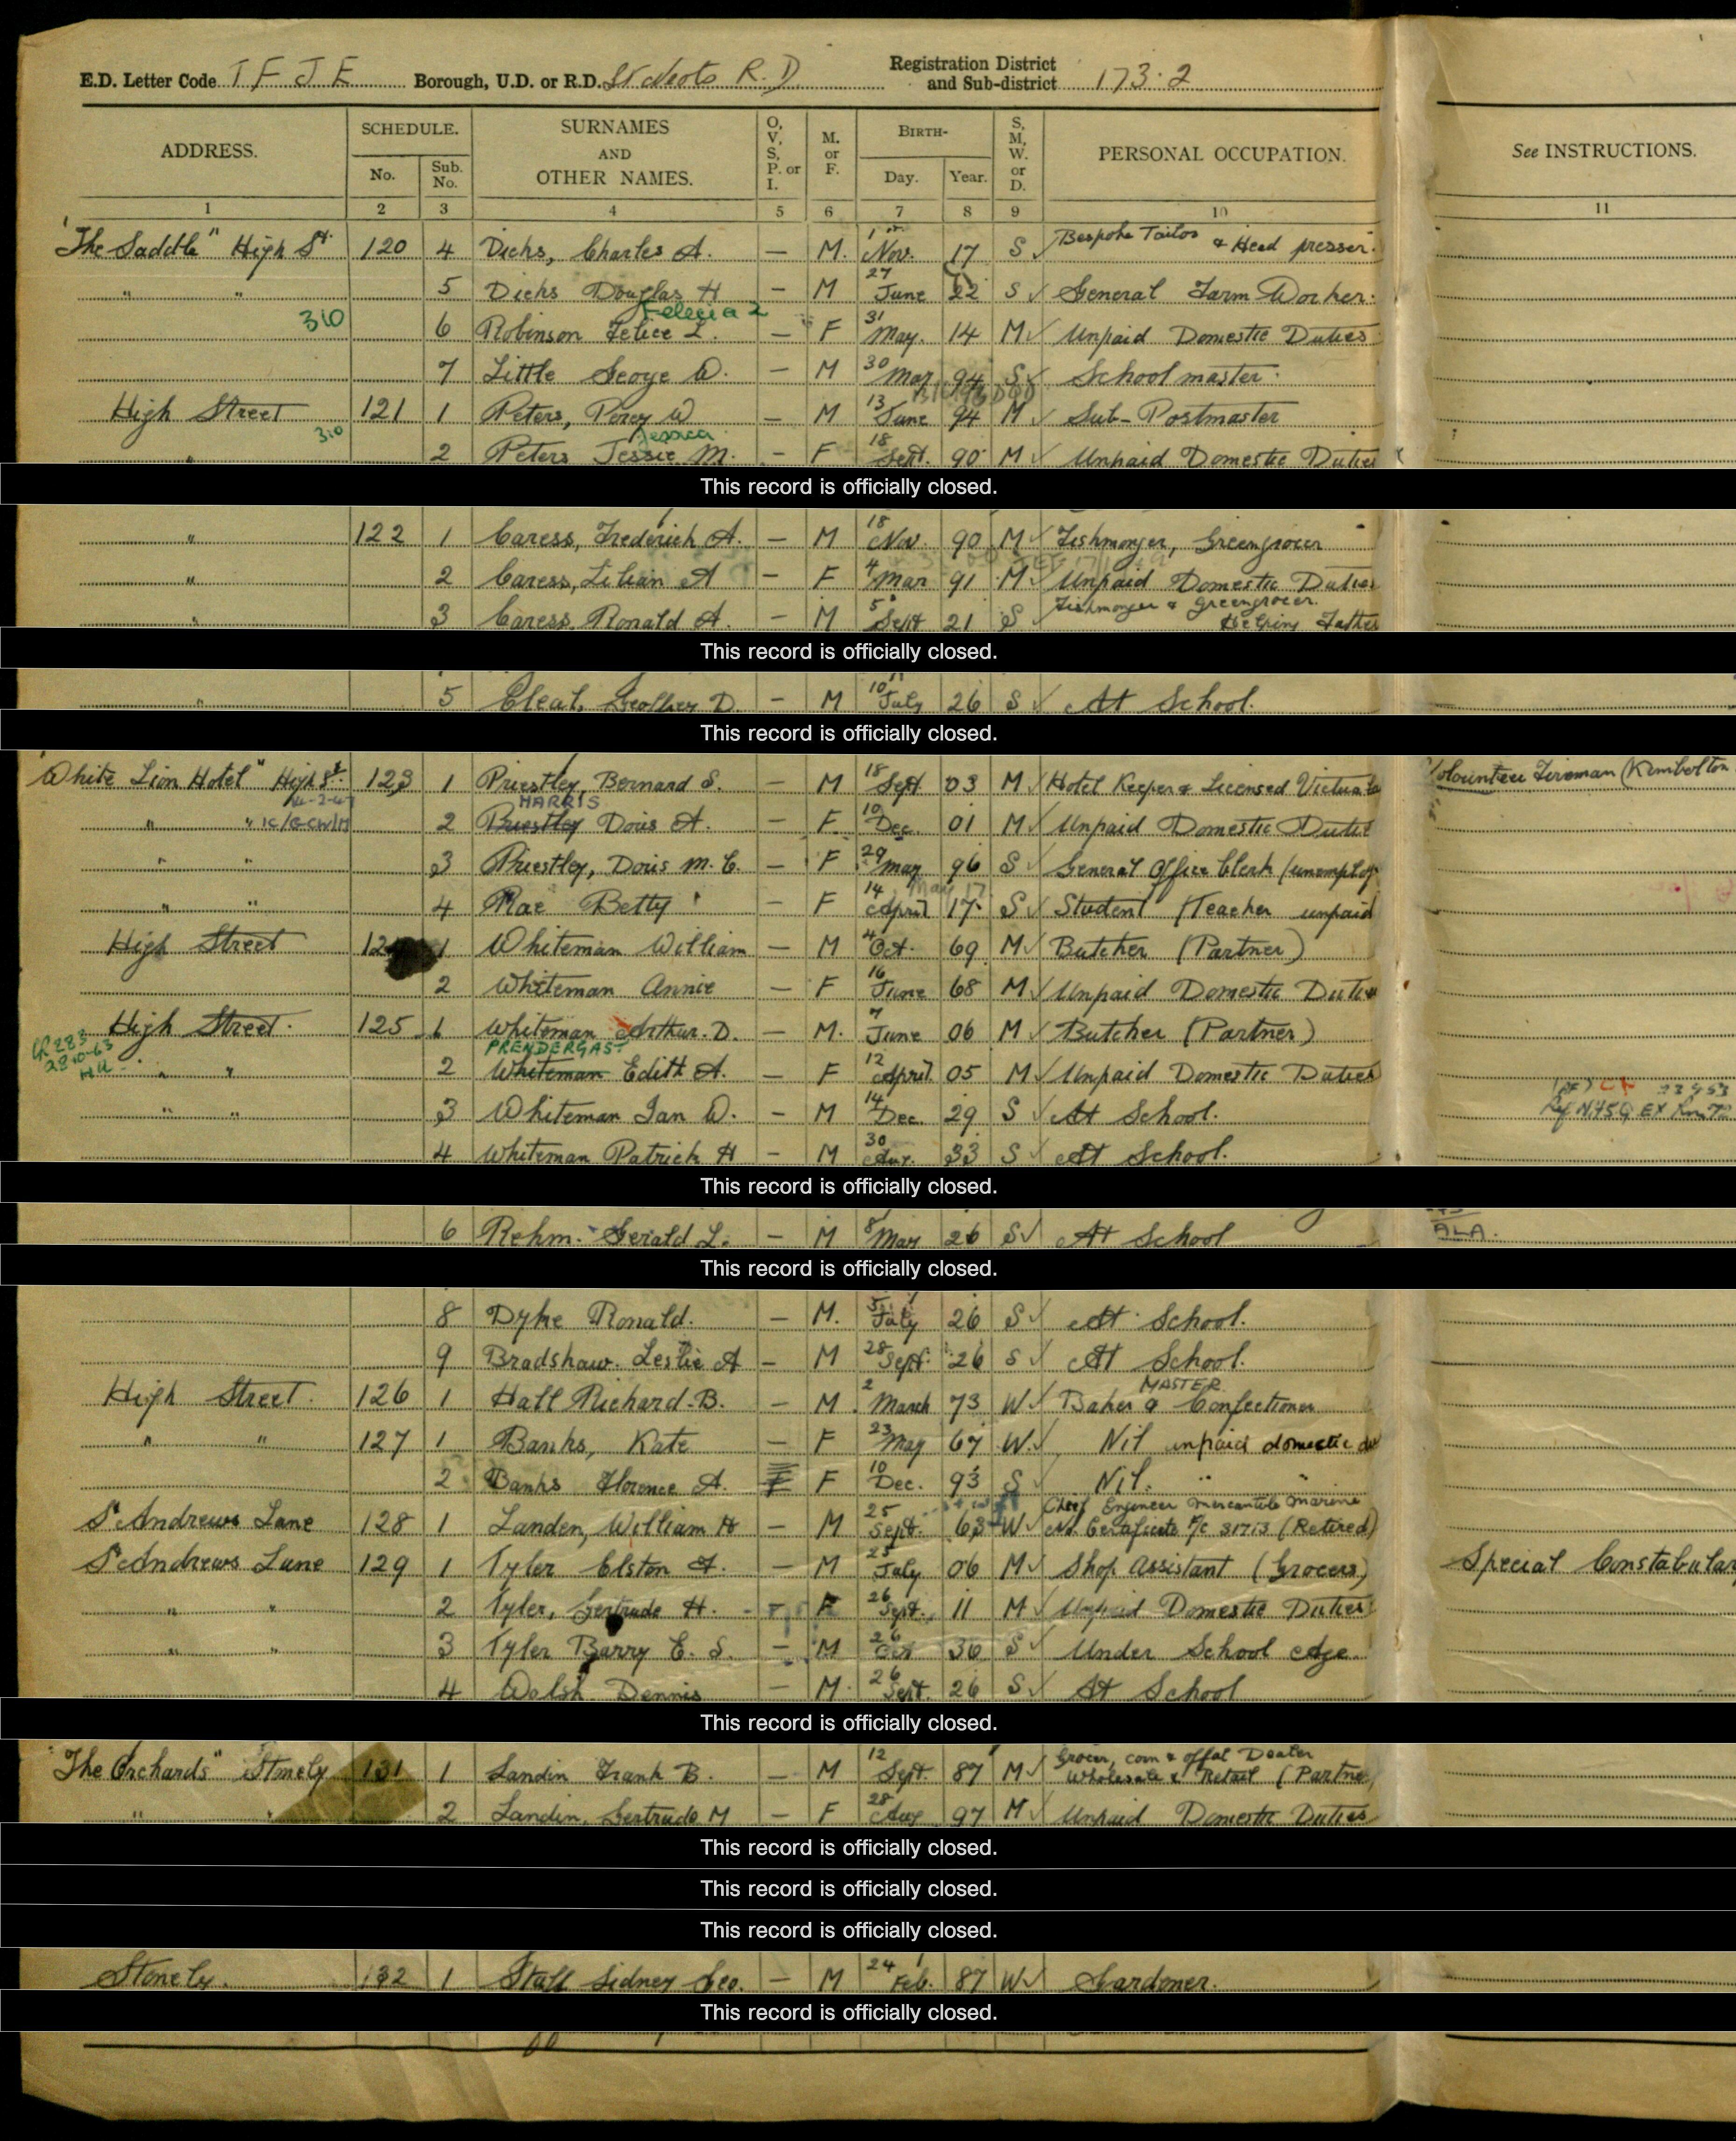 E.D. Letter Code T F J E Borough, U.D. or R.D. St Neots R.D Registration District and Sub-district 173.2
ADDRESS. SCHEDULE. No. Sub. No. SURNAMES AND OTHER NAMES. O, V, S, P. or I. M. or F. BIRTH- Day. Year. S, M, W. or D. PERSONAL OCCUPATION. See INSTRUCTIONS.
1 2 3 4 5 6 7 8 9 10 11
"The Saddle" High St. 120 4 Dicks, Charles A. — M. 1 Nov. 17 S Bespoke Tailor & Head presser.
" " 5 Dicks Douglas H — M 27 June 22 S General Farm Worker.
Felicia 2
310 6 Robinson Felice L. — F 31 May. 14 M Unpaid Domestic Duties
7 Little George W. — M 30 Mar 94 S School master.
High Street 121 1 Peters, Percy W — M 13 June 94 M Sub-Postmaster
Jessica
310 " 2 Peters Jessie M. — F 18 Sept. 90 M Unpaid Domestic Duties
This record is officially closed.
" 122 1 Caress, Frederick A. — M 18 Nov. 90 M Fishmonger, Greengrocer
" 2 Caress, Lilian A — F 4 Mar 91 M Unpaid Domestic Duties
" 3 Caress, Ronald A. — M 5 Sept 21 S Fishmonger & Greengrocer Helping Father
This record is officially closed.
" 5 Cleal, Geoffrey D. — M 10 July 26 S At School.
This record is officially closed.
"White Lion Hotel" High St. 123 1 Priestley, Bernard S. — M 18 Sept 03 M Hotel Keeper & Licensed Victualler Volunteer Fireman (Kimbolton
HARRIS
" " 2 Priestley Doris A. — F. 10 Dec 01 M Unpaid Domestic Duties
" " 3 Priestley, Doris M. C. — F 29 May 96 S General Office Clerk (unemploy
" " 4 Rae Betty — F 14 April 17 S Student (Teacher unpaid
High Street 124 1 Whiteman William — M 4 Oct. 69 M Butcher (Partner)
2 Whiteman Annie — F 16 June 68 M Unpaid Domestic Duties
High Street. 125 1 Whiteman Arthur. D. — M. 7 June 06 M Butcher (Partner)
PRENDERGAST
" " 2 Whiteman Edith A. — F 12 April 05 M Unpaid Domestic Duties
" " 3 Whiteman Ian W. — M 14 Dec 29 S At School.
4 Whiteman Patrick H — M 30 Apr. 33 S At School.
This record is officially closed.
6 Rehm. Gerald L. — M 8 Mar 26 S At School ALA.
This record is officially closed.
8 Dyke Ronald. — M. 5 July 26 S At School.
9 Bradshaw. Leslie A — M 28 Sept. 26 S At School.
MASTER
High Street. 126 1 Hall Richard. B. — M. 2 March 73 W Baker & Confectioner
" " 127 1 Banks, Kate — F 23 May 67 W. Nil unpaid domestic du
2 Banks Florence A. F 10 Dec. 93 S Nil. " "
St Andrews Lane 128 1 Landen, William H — M 25 Sept. 63 W Chief Engineer Mercantile Marine No. Certificate F/c 31713 (Retired)
St Andrews Lane 129 1 Tyler Elston A. — M 23 July 06 M Shop Assistant (Grocers) Special Constabular
" " 2 Tyler, Gertrude H. F 26 Sept. 11 M Unpaid Domestic Duties
" " 3 Tyler Barry E. S. — M 26 Oct 36 S Under School Age.
4 Walsh Dennis — M. 26 Sept. 26 S At School
This record is officially closed.
"The Orchards" Stonely 131 1 Landin Frank B. — M 12 Sept. 87 M Grocer, corn & offal Dealer Wholesale & Retail (Partner)
" " 2 Landin, Gertrude M — F 28 Aug 97 M Unpaid Domestic Duties
This record is officially closed.
This record is officially closed.
This record is officially closed.
Stonely. 132 1 Stall Sidney Geo. — M 24 Feb. 87 W Gardener.
This record is officially closed.